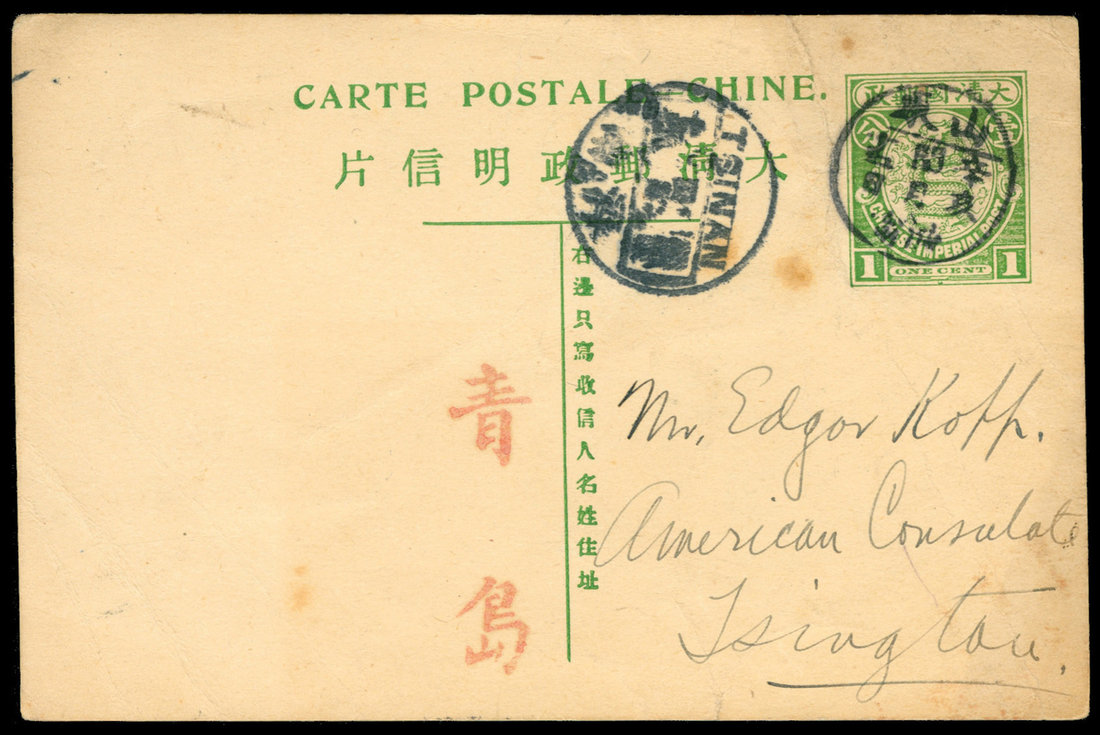 CARTE POSTALE CHINE.
片信明政郵清大
政郵國清大
壹
分
CHINESE IMPERIAL POST
1 ONE CENT 1
TSINAN
右邊只寫收信人名姓住址
青島
Mr. Edgar Kopp.
American Consulate
Tsingtau.